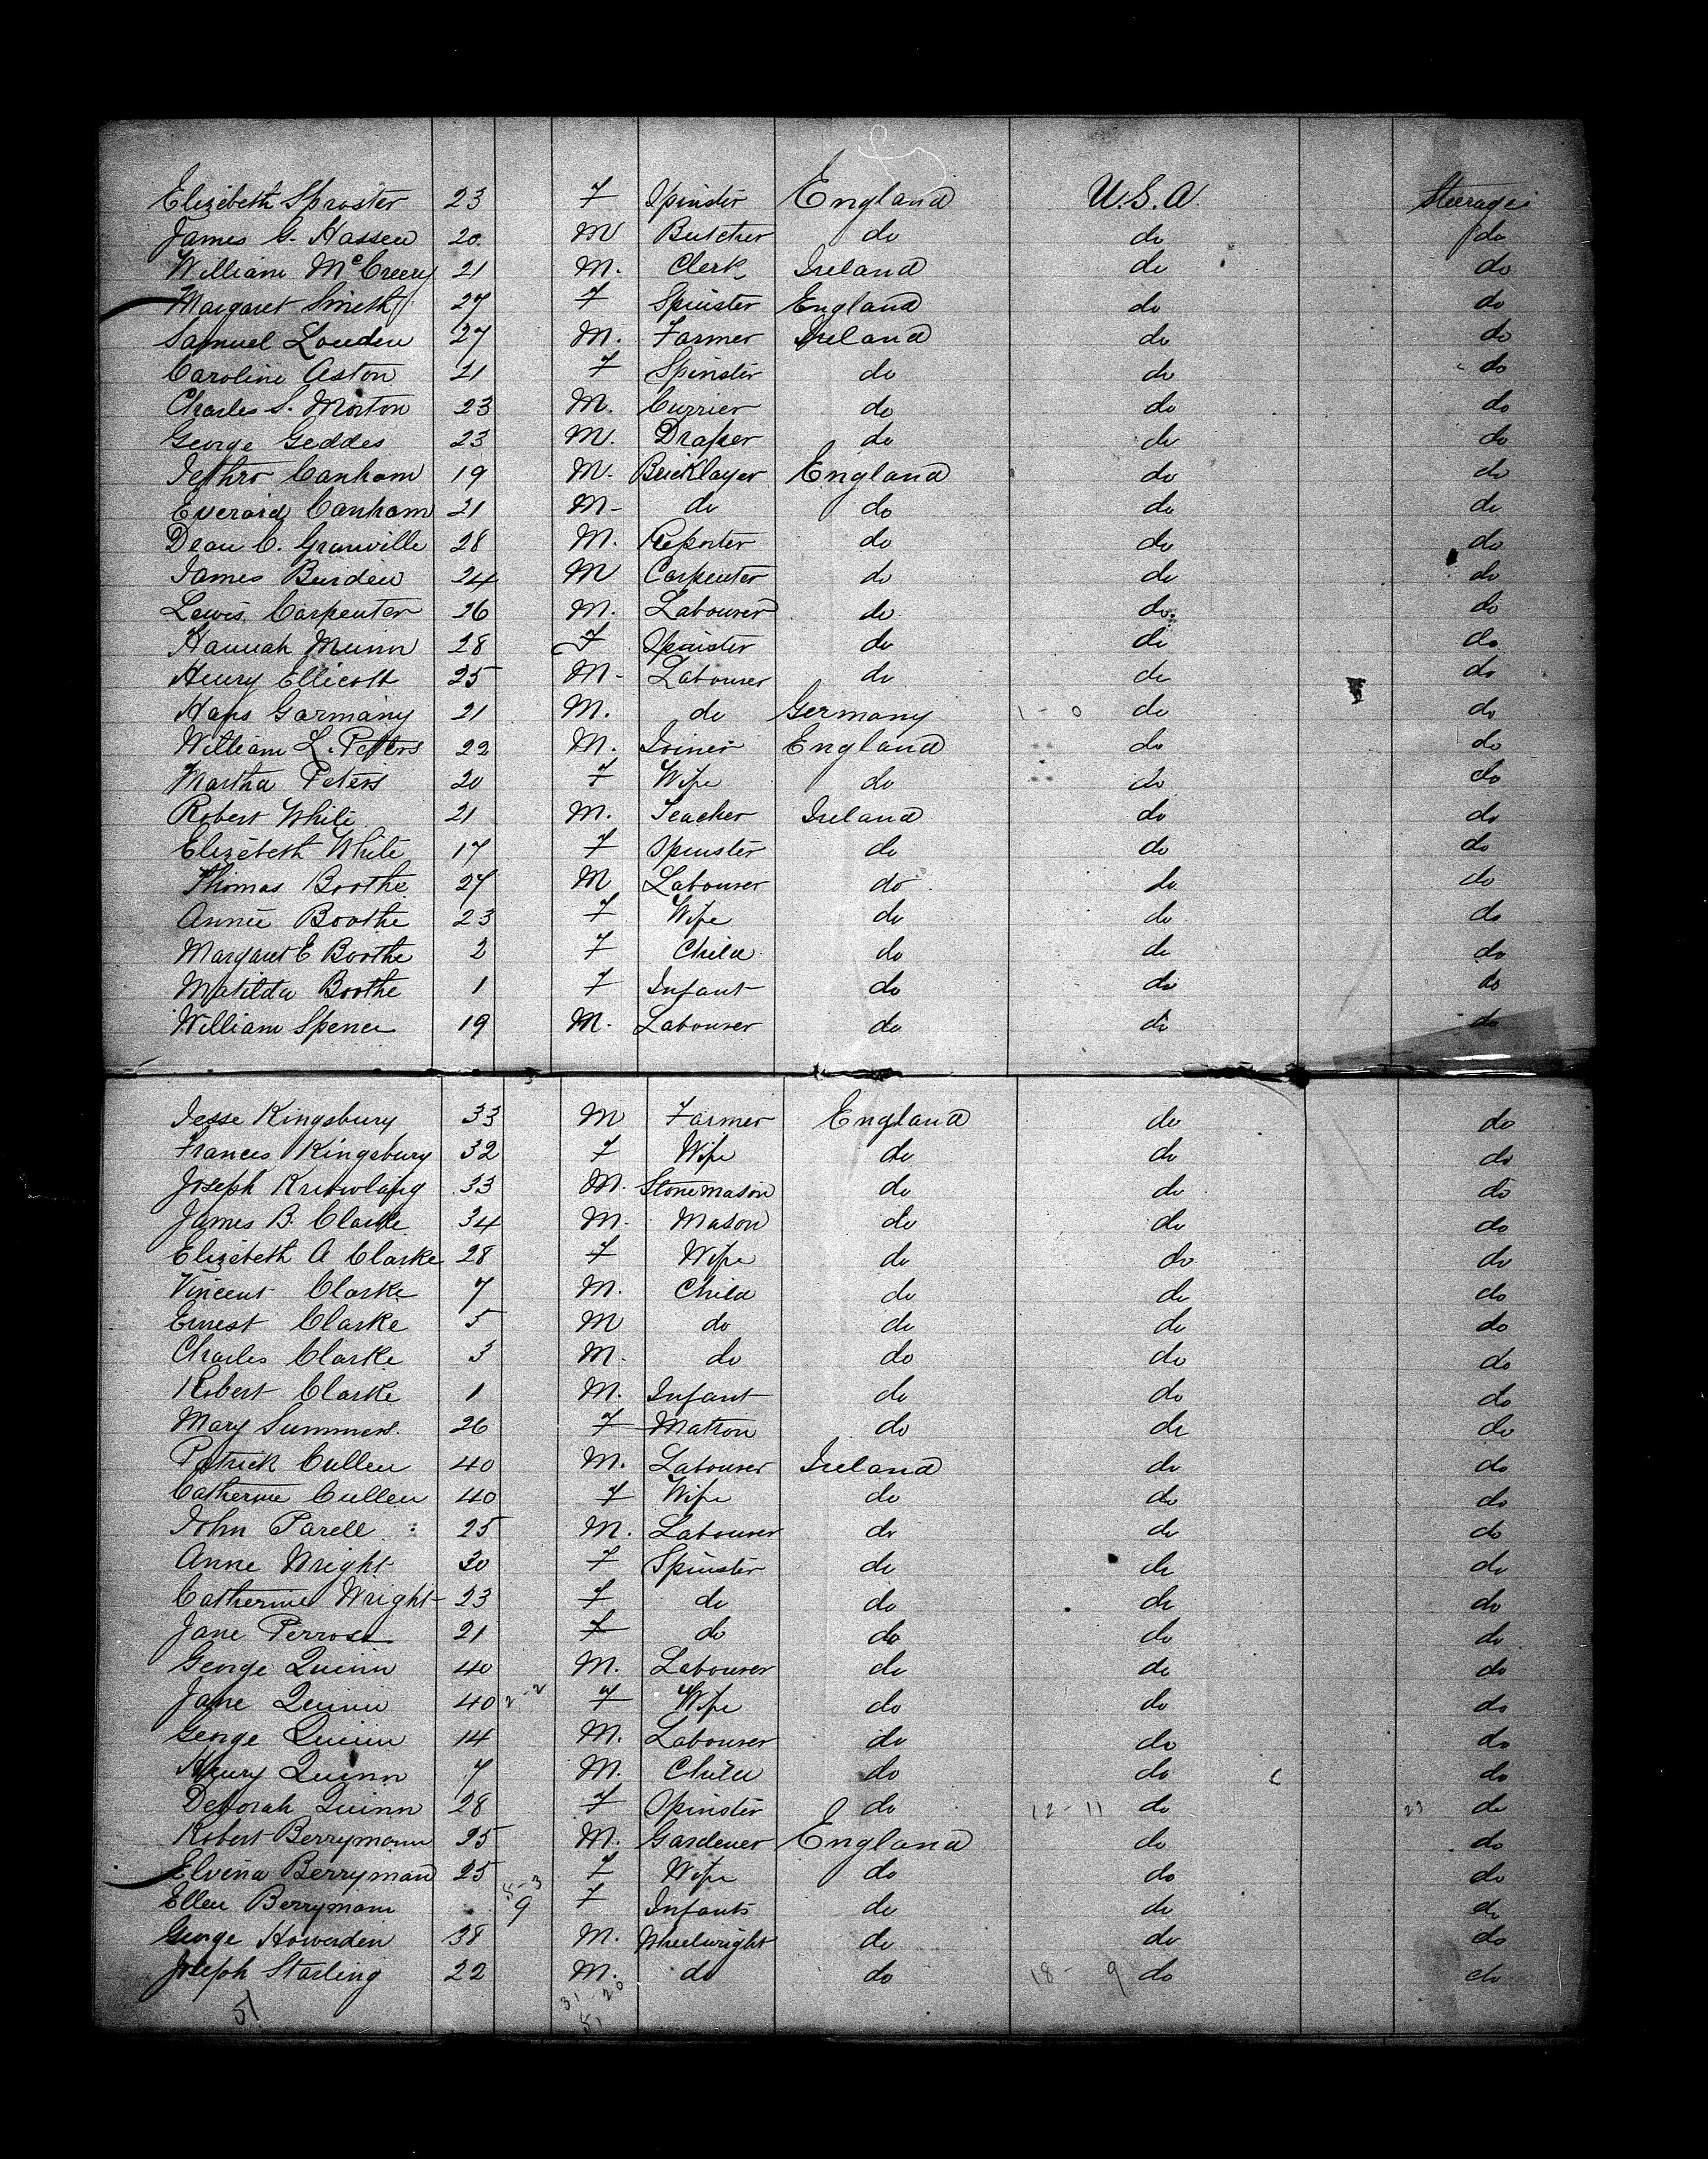 Elizebeth Sproster 23 F Spinster England U.S.A. Steerage
James G. Hassen 20. M Butcher do do do
William McCreery 21 M. Clerk Ireland do do
Margaret Smith 27 F Spinster England do do
Samuel Louden 27 M. Farmer Ireland do do
Caroline Aston 21 F Spinster do do do
Charles S. Morton 23 M. Currier do do do
George Geddes 23 M. Draper do do do
Jethro Canham 19 M. Bricklayer England do do
Everard Canham 21 M- do do do do
Dean C. Granville 28 M. Reporter do do do
James Burden 24 M Carpenter do do do
Lewis Carpenter 26 M. Labourer do do do
Hannah Munn 28 F Spinster do do do
Henry Ellicott 25 M- Labourer do do do
Hans Garmany 21 M. do Germany 1 - 0 do do
William L. Peters 22 M. Joiner England do do
Martha Peters 20 F Wife do do do
Robert White 21 M. Teacher Ireland do do
Elizebeth White 17 F Spinster do do do
Thomas Boothe 27 M Labourer do do do
Annie Boothe 23 F Wife do do do
Margaret E Boothe 2 F Child do do do
Matilda Boothe 1 F Infant do do do
William Spence 19 M. Labourer do do do
Jesse Kingsbury 33 M Farmer England do do
Frances Kingsbury 32 F Wife do do do
Joseph 33 M. Stonemason do do do
James B. Clarke 34 M. Mason do do do
Elizebeth A Clarke 28 F Wife do do do
Vincent Clarke 7 M. Child do do do
Ernest Clarke 5 M do do do do
Charles Clarke 3 M. do do do do
Robert Clarke 1 M. Infant do do do
Mary Summers. 26 F Matron do do do
Patrick Cullen 40 M. Labourer Ireland do do
Catherine Cullen 40 F Wife do do do
John Parell 25 M. Labourer do do do
Anne Wright 30 F Spinster do do do
Catherine Wright 23 F do do do do
Jane 21 F do do do do
George Quinn 40 M. Labourer do do do
Jane Quinn 40 2-2 F Wife do do do
George Quinn 14 M. Labourer do do do
Henry Quinn 7 M. Child do do do
Deborah Quinn 28 F Spinster do 12-11 do 23 do
Robert Berrymann 25 M. Gardener England do do
Elvena Berryman 25 F Wife do do do
Ellen Berrymann 5-3 9 F Infants do do do
George Howerden 38 M. Wheelwright do do do
Joseph Starling 22 M. do do 18- 9 do do
51 31 20
51